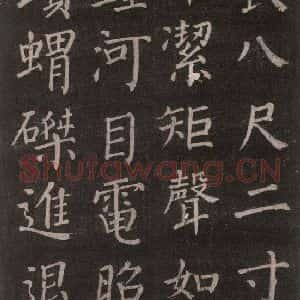 長八尺二寸
潔矩聲如
河目電昭
蝟磔進退
Shufawang.CN